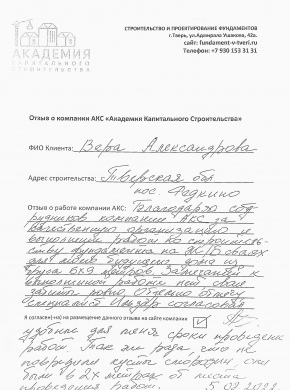 АКАДЕМИЯ
КАПИТАЛЬНОГО
СТРОИТЕЛЬСТВА
СТРОИТЕЛЬСТВО И ПРОЕКТИРОВАНИЕ ФУНДАМЕНТОВ
г.Тверь, ул.Адмирала Ушакова, 42а.
сайт: fundament-v-tveri.ru
Телефон: +7 930 153 31 31
Отзыв о компании АКС «Академия Капитального Строительства»
ФИО Клиента: Вера Александрова
Адрес строительства: Тверская обл
пос. Редкино
Отзыв о работе компании АКС: Благодарю сот
рудников компании АКС за
качественную организацию и
выполнение работ по строитель-
ству фундамента на Ж/Б сваях
для моего будущего дома из
бруса 6х9 метров. Замечаний к
выполненной работе нет. Сваи
забиты ровно. Отдельно
специалист согласовал
Я согласен(-на) на размещение данного отзыва на сайте компании
удобные для меня сроки проведения
работ. Также рада, что не
повредили кусты смородины они
были в 2х метрах от места
проведения работ. 5.08.2022